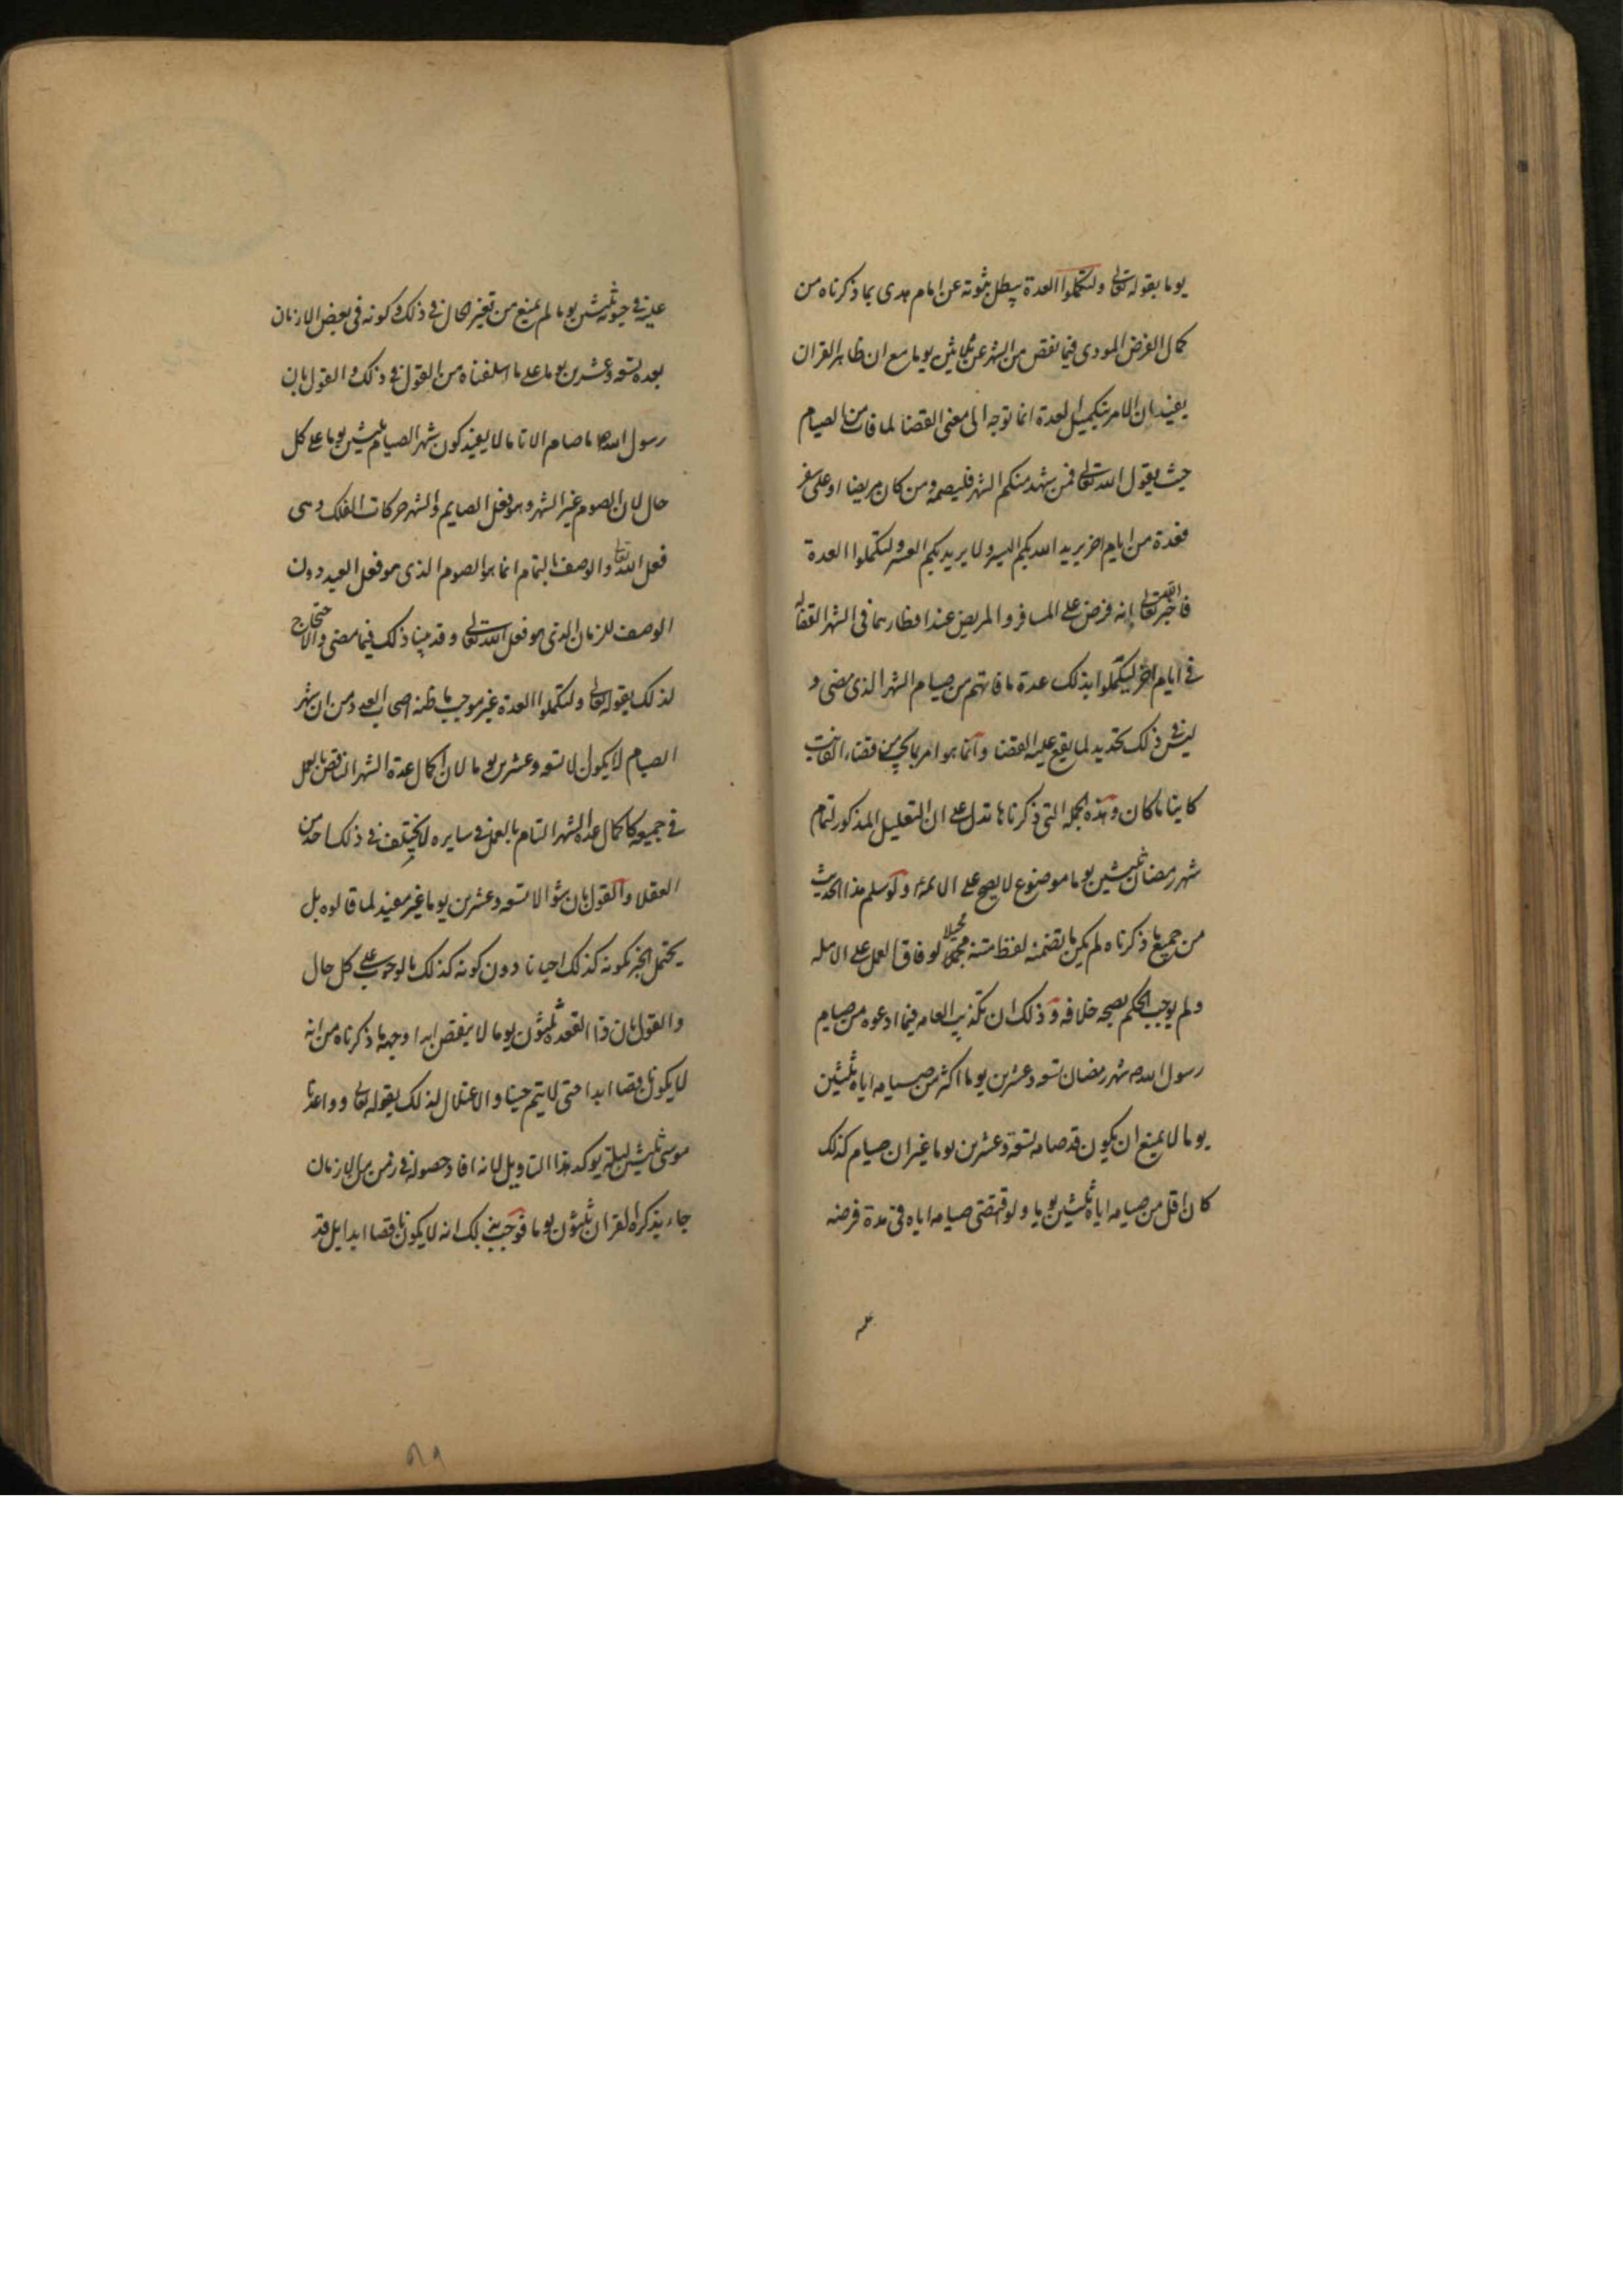 يوما بقوله تعالى ولتكملوا العدة يبطل ثبوته عن امام هدى بما ذكرناه من
كمال الفرض المودى فيما نقص من الشهر عن ثلاثين يوما مع ان ظاهر القران
يفيد بان الامر بتكميل العدة انما توجه الى معنى القضا لما فات من الصيام
حيث يقول الله تعالى فمن شهد منكم الشهر فليصمه ومن كان مريضا او على سفر
فعدة من ايام اخر يريد الله بكم اليسر ولا يريد بكم العسر ولتكملوا العدة
فاخبر الله تعالى انه فرض على المسافر والمريض عند افطارهما في الشهر القضا له
في ايام اخر ليكملوا بذلك عدة ما فاتهم من صيام الشهر الذى مضى و
ليس في ذلك تحديد لما يقع عليه القضا وانما هو امر بما يجب من قضاء الفايت
كاينا ما كان وهذه الجملة التي ذكرناها تدل على ان التعليل المذكور لتمام
شهر رمضان ثلثين يوما موضوع لا يصح على الائمة ولو سلم هذا الحديث
من جميع ما ذكرناه لم يكن ما تضمنه لفظ متنه مجملا لوفاق العمل على الاهله
ولم يوجب الحكم بصحة خلافه وذلك ان تكذيب العامه فيما ادعوه من صيام
رسول الله ص شهر رمضان تسعه وعشرين يوما اكثر من صيامه اياه ثلثين
يوما لا يمنع ان يكون قد صامه تسعة وعشرين يوما غير ان صيام كذلك
كان اقل من صيامه اياه ثلثين يوما ولو اقتضى صيامه اياه في مدة فرضه
عليه في حيوته ثلثين يوما لم يمنع من تغير الحال في ذلك وكونه في بعض الازمان
بعده تسعه وعشرين يوما على ما اسلفناه من القول في ذلك والقول بان
رسول الله ص ما صام الا تاما لا يفيد كون شهر الصيام ثلثين يوما على كل
حال لان الصوم غير الشهر وهو فعل الصايم والشهر حركات الفلك وهى
فعل الله تعالى والوصف بالتمام انما هو الصوم الذى هو فعل العبد دون
الوصف للزمان الذى هو فعل الله تعالى وقد بينا ذلك فيما مضى والاحتجاج
لذلك بقوله تعالى ولتكملوا العدة غير موجب ما ظنه اصحاب العدد من ان شهر
الصيام لا يكون الا تسعه وعشرين يوما لان اكمال عدة الشهر الناقص بالعمل
في جميعه كاكمال عدة الشهر التام بالعمل في سايره لا يختلف في ذلك احد من
العقلا والقول بان شوالا تسعه وعشرين يوما غير مفيد لما قالوه بل
يحتمل الخبر بكونه كذلك احيانا دون كونه كذلك بالوجوب على كل حال
والقول بان ذا القعده ثلثون يوما لا ينقص ابدا وجهه ما ذكرناه من انه
لا يكون ناقصا ابدا حتى لا يتم حينا والاعتلال لذلك بقوله تعالى وواعدنا
موسى ثلثين ليلة يوكد هذا التاويل لانه افاد حصوله في زمن من الازمان
جاء بذكره القران ثلثون يوما فوجب بذلك انه لا يكون ناقصا ابدا بل قد
عليه